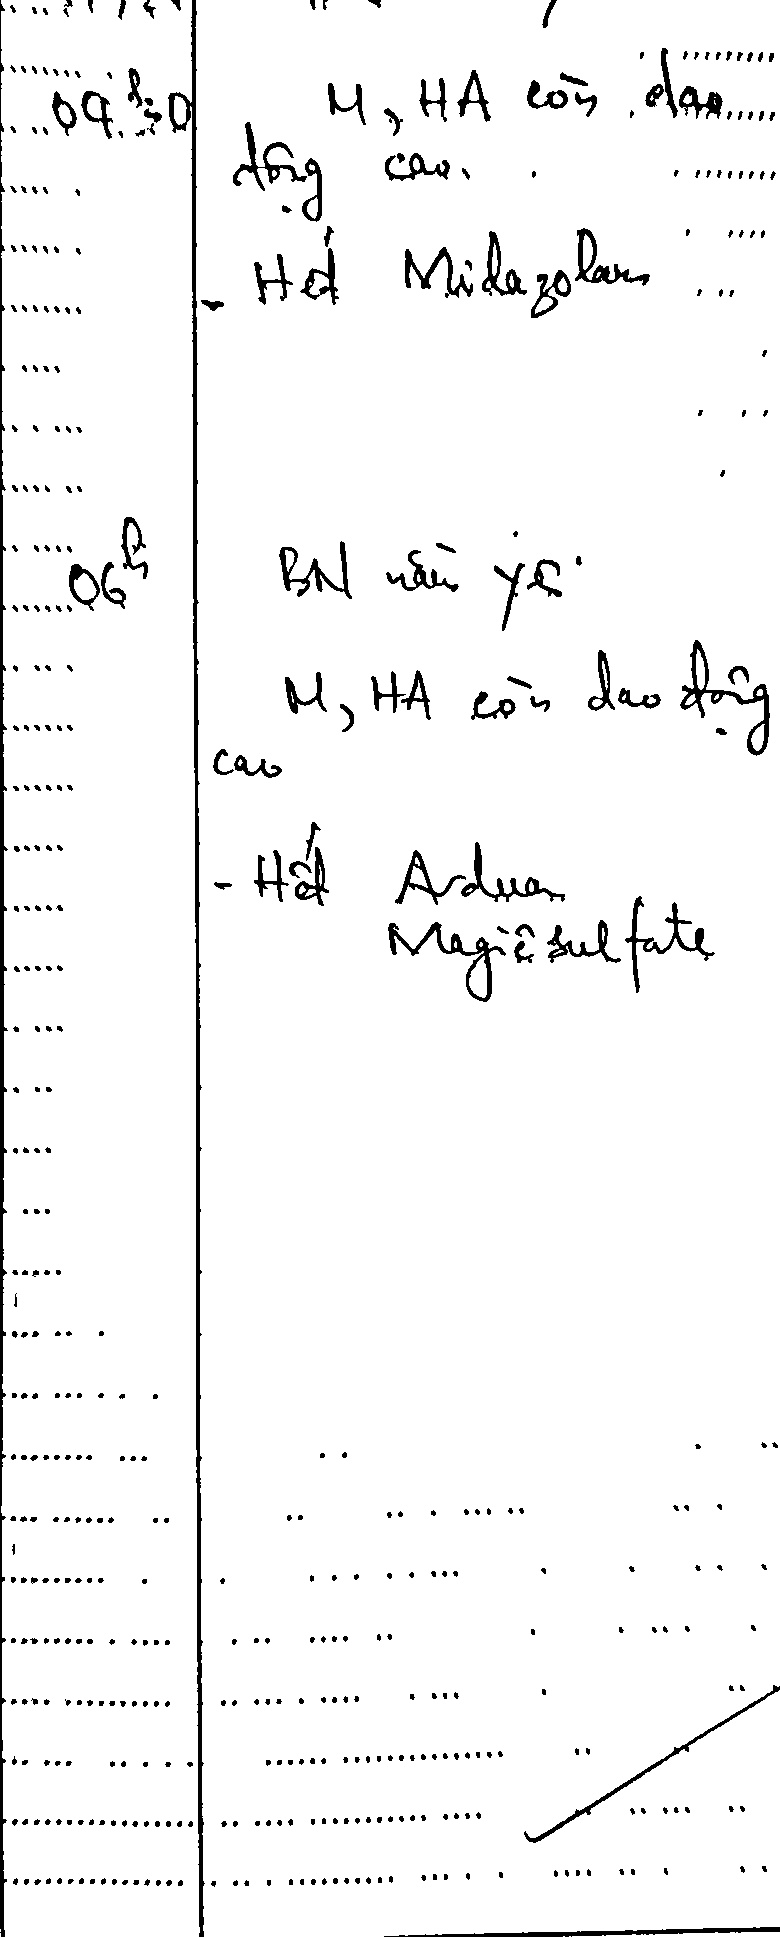 04h30 M, HA còn dao
động cao.
- Hết Midazolam
06h BN nằm yên
M, HA còn dao động
cao
- Hết Arduan
Magiêsulfate